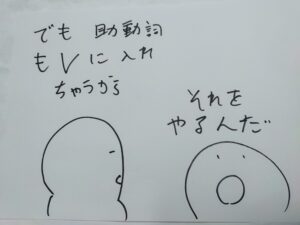 でも 助動詞
も V に 入れ
ちゃうから
それを
やるんだ